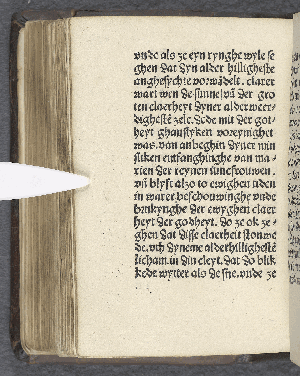 vnde als ze eyn rynghe wyle se
ghen dat dyn alder hilligheste
anghesychte vorwādelt. clarer
wart wen de sunne vn̄ der gro
ten claerheyt dyner alderweer-
dighestē zele. Se de mit der got-
heyt ghansliken voreynighet
was. van anbeghin dyner min
sliken entfanghinghe van ma-
rien der reynen iuncfrouwen.
vn̄ blyft alzo to ewighen tiden
in warer beschouwinghe vnde
brukynghe der ewyghen claer
heyt der godheyt. do ze ok ze-
ghen dat disse claerheit stonwe
de. vth dyneme alderhillighestē
licham in din cleyt. dat do blik
kede wytter als de sne. vnde ze